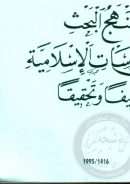 نهج البحث
سات الإسلامية
فا وتحقيقا
1995/1416